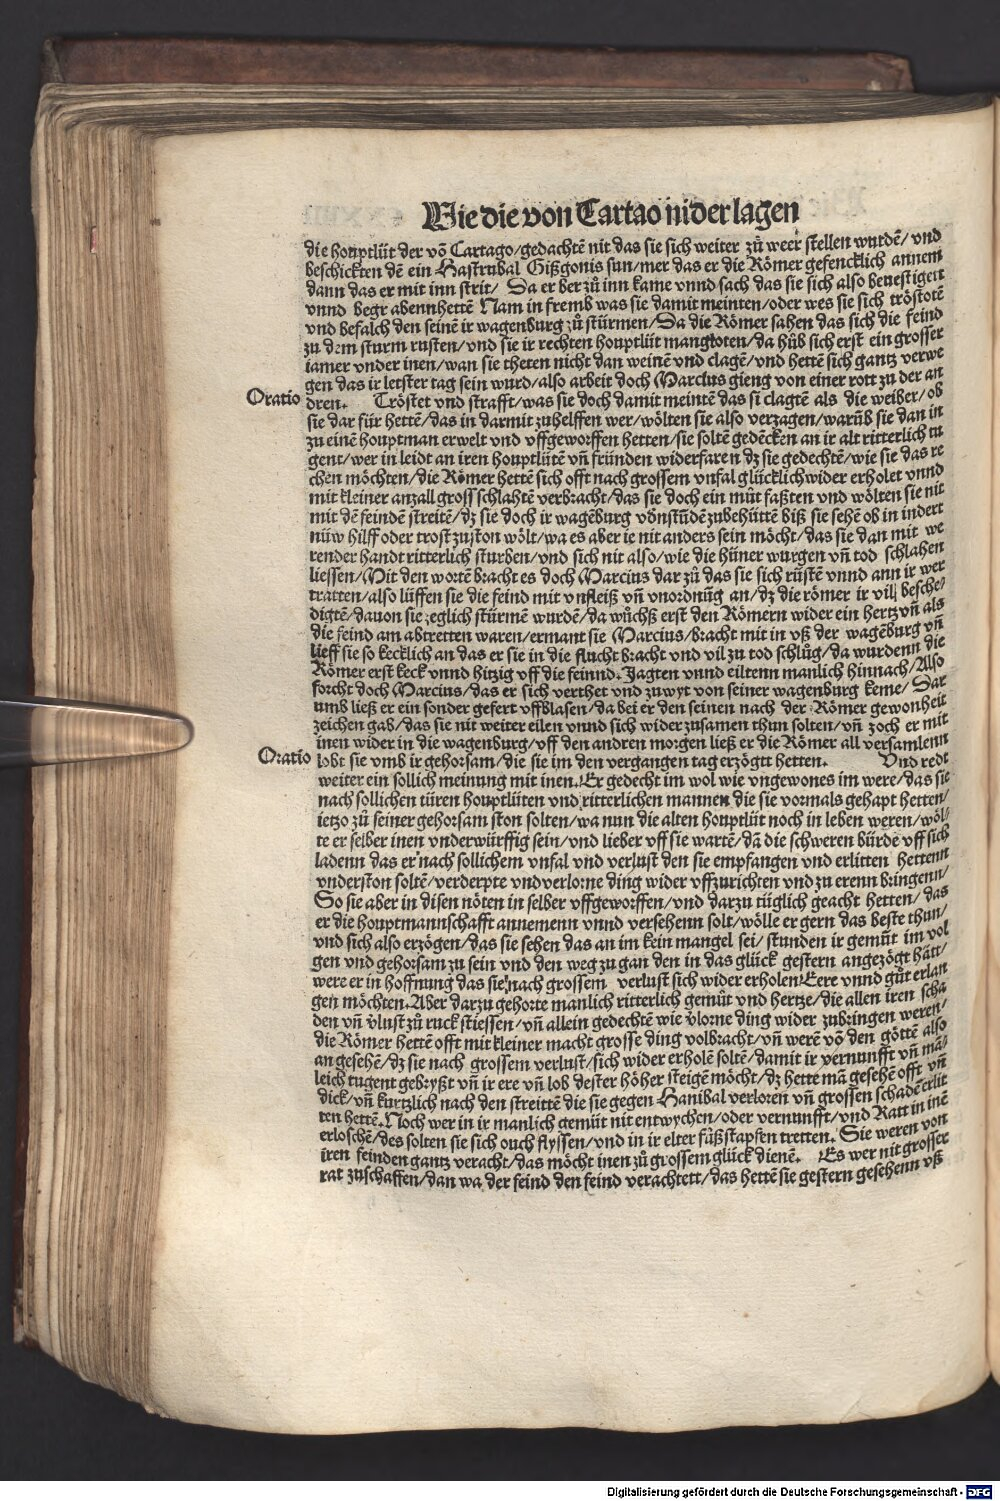 Wie die von Cartao nider lagen
die houptlüt der võ Cartago/gedachtẽ nit das sie sich weiter zů weer stellen wurdẽ/vnd
beschickten dẽ ein Hastrubal Gißgonis sun/mer das er die Römer gefencklich annem
dann das er mit inn strit/ Da er ber zů inn kame vnnd sach das sie sich also beuestigett
vnnd begr abennhettẽ Nam in fremb was sie damit meinten/oder wes sie sich tröstotẽ
vnd befalch den seinẽ ir wagenburg zů stürmen/Da die Römer sahen das sich die feind
zu dem sturm rusten/vnd sie ir rechten houptlüt mangloten/da hůb sich erst ein grosser
iamer vnder inen/wan sie theten nicht dan weinẽ vnd clagẽ/vnd hettẽ sich gantz verwe
gen das ir letster tag sein wurd/also arbeit doch Marcius gieng von einer rott zu der an
Oratio
dren. Tröstet vnd strafft/was sie doch damit meintẽ das si clagtẽ als die weiber/ob
sie dar für hettẽ/das in darmit zuhelffen wer/wölten sie also verzagen/warũb sie dan in
zu einẽ houptman erwelt vnd vffgeworffen hetten/sie soltẽ gedẽcken an ir alt ritterlich tu
gent/wer in leidt an iren houptlütẽ vñ fründen widerfaren dz sie gedechtẽ/wie sie das re
chen möchten/die Römer hettẽ sich offt nach grossem vnfal glücklich wider erholet vnnd
mit kleiner anzall gross schlahtẽ verbracht/das sie doch ein můt faßten vnd wölten sie nit
mit dẽ feindẽ streitẽ/dz sie doch ir wagẽburg võnstũdẽ zubehüttẽ biß sie sehẽ ob in indert
nüw hilff oder trost zuston wölt/wa es aber ie nit anders sein möcht/das sie dan mit we
render handt ritterlich sturben/vnd sich nit also/wie die hüner wurgen vñ tod schlahen
liessen/Mit den wortẽ bracht es doch Marcius dar zů das sie sich rüstẽ vnnd ann ir wer
tratten/also lüffen sie die feind mit vnfleiß vñ vnordnũg an/dz die römer ir vil besche/
digtẽ/dauon sie zeglich stürmẽ wurdẽ/da wůchß erst den Römern wider ein hertz vñ als
die feind am abtretten waren/ermant sie Marcius/bracht mit in vß der wagẽburg vñ
lieff sie so kecklich an das er sie in die flucht bracht vnd vil zu tod schlůg/da wurdenn die
Römer erst keck vnnd hitzig vff die feinnd. Jagten vnnd eiltenn manlich hinnach/Also
forcht doch Marcius/das er sich verthet vnd zuwyt von seiner wagenburg keme/ Dar
umb ließ er ein sonder gefert vffblasen/da bei er den seinen nach der Römer gewonheit
zeichen gab/das sie nit weiter eilen vnnd sich wider zusamen thun solten/vñ zoch er mit
inen wider in die wagenburg/vff den andren morgen ließ er die Römer all versamlenn
Oratio
lobt sie vmb ir gehorsam/die sie im den vergangen tag erzögtt hetten. Vnd redt
weiter ein sollich meinung mit inen. Er gedecht im wol wie vngewones im were/das sie
nach sollichen türen houptlüten vnd ritterlichen mannen die sie vormals gehapt hetten/
ietzo zů seiner gehorsam ston solten/wa nun die alten houptlüt noch in leben weren/wöl/
te er selber inen vnderwürffig sein/vnd lieber vff sie wartẽ/dã die schweren bürde vff sich
ladenn das er nach sollichem vnfal vnd verlust den sie empfangen vnd erlitten hettenn
vnderston soltẽ/verderpte vnd verlorne ding wider vffzurichten vnd zu erenn bringenn/
So sie aber in disen nöten in selber vffgeworffen/vnd darzu tüglich geacht hetten/das
er die houptmannschafft annemenn vnnd versehenn solt/wölle er gern das beste thun/
vnd sich also erzögen/das sie sehen das an im kein mangel sei/ stunden ir gemüt im vol
gen vnd gehorsam zu sein vnd den weg zu gan den in das glück gestern angezögt hått/
were er in hoffnung das sie nach grossem verlust sich wider erholen Eere vnnd gůt erlan
gen möchten. Aber darzu gehorte manlich ritterlich gemüt vnd hertze/die allen iren scha
den vñ vlust zů ruck stiessen/vñ allein gedechtẽ wie vlorne ding wider zubringen weren/
die Römer hettẽ offt mit kleiner macht grosse ding volbracht/vñ werẽ võ den göttẽ also
an gesehẽ/dz sie nach grossem verlust/sich wider erholẽ soltẽ/damit ir vernunfft vñ mã/
leich tugent gebryßt vñ ir ere vñ lob dester höher steigẽ möcht/dz hette mã gesehẽ offt vñ
dick/vñ kurtzlich nach den streittẽ die sie gegen Hanibal verloren vñ grossen schadẽ erlit
ten hettẽ. Noch wer in ir manlich gemüt nit entwychen/oder vernunfft/vnd Ratt in inẽ
erloschẽ/des solten sie sich ouch flyssen/vnd in ir elter fůßstapfen tretten. Sie weren von
iren feinden gantz veracht/das möcht inen zů grossem glück dienẽ. Es wer nit grosser
rat zuschaffen/dan wa der feind den feind verachtett/das hettẽ sie gestern gesehenn vß
Digitalisierung gefördert durch die Deutsche Forschungsgemeinschaft - DFG